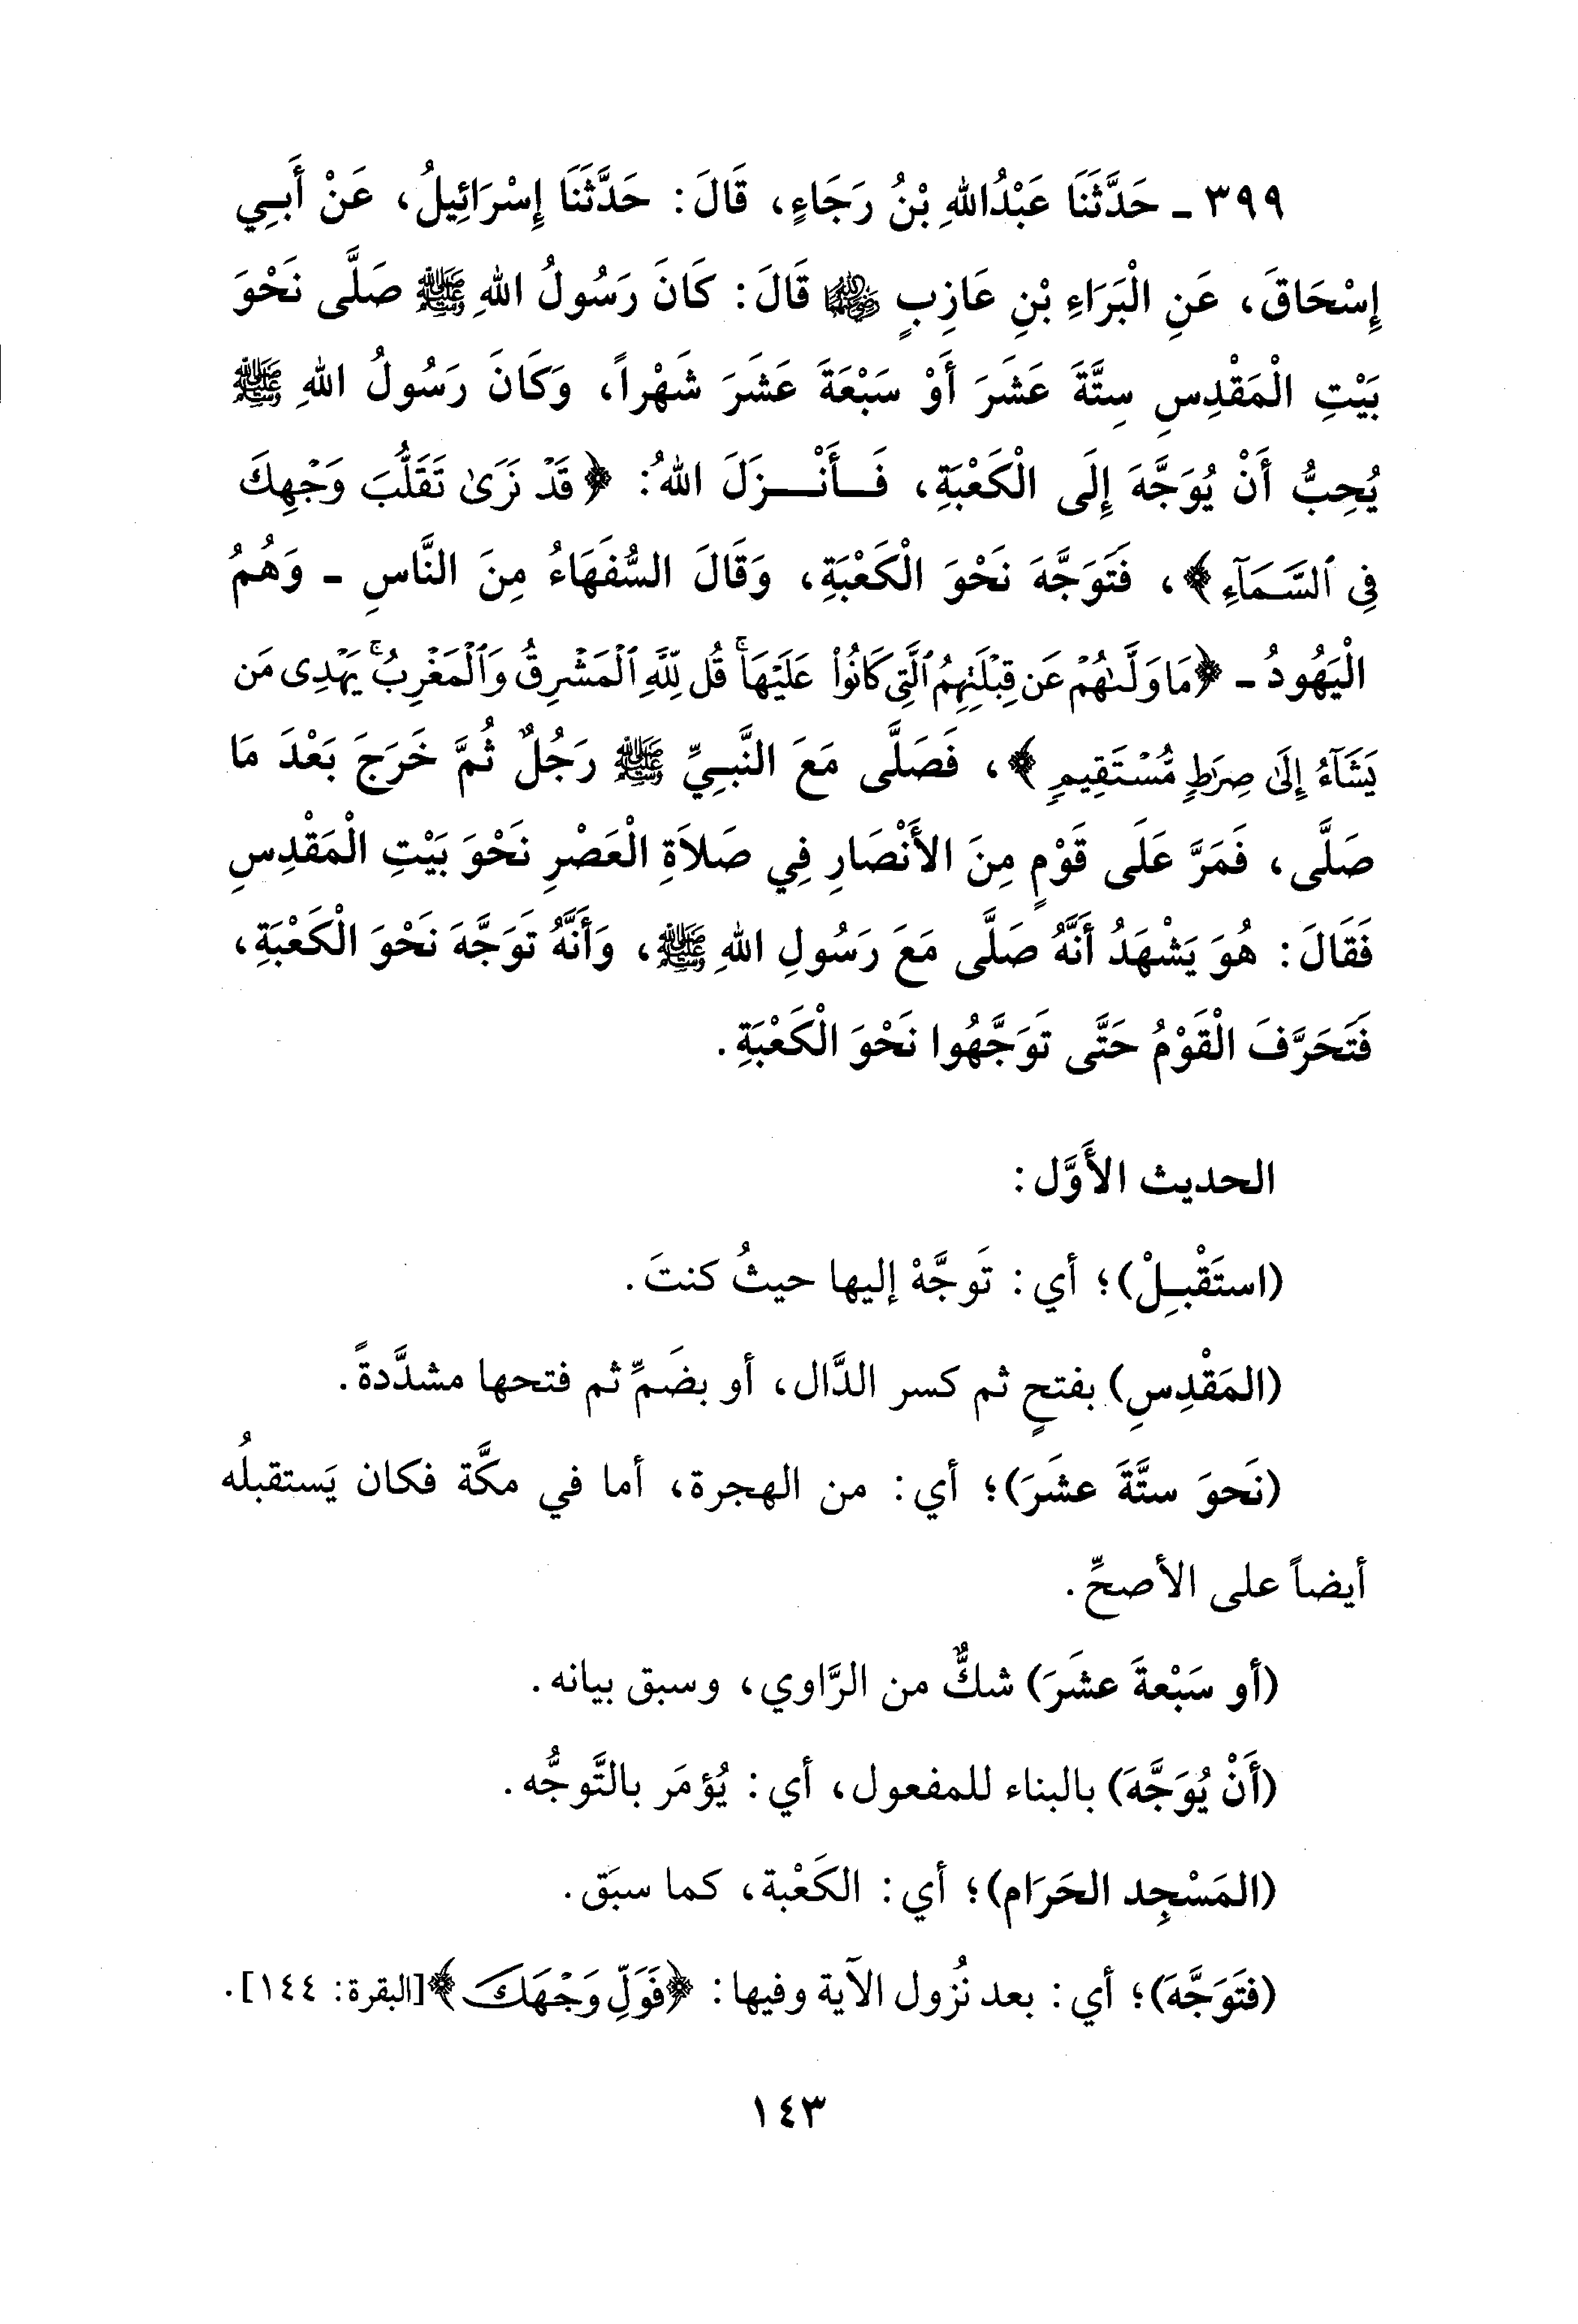 ٣٩٩ ـ حَدَّثَنَا عَبْدُاللهِ بْنُ رَجَاءٍ، قَالَ: حَدَّثَنَا إِسْرَائِيلُ، عَنْ أَبِي
إِسْحَاقَ، عَنِ الْبَرَاءِ بْنِ عَازِبٍ رضي الله عنهما قَالَ: كَانَ رَسُولُ اللهِ ﷺ صَلَّى نَحْوَ
بَيْتِ الْمَقْدِسِ سِتَّةَ عَشَرَ أَوْ سَبْعَةَ عَشَرَ شَهْراً، وَكَانَ رَسُولُ اللهِ ﷺ
يُحِبُّ أَنْ يُوَجَّهَ إِلَى الْكَعْبَةِ، فَــأَنْــزَلَ اللهُ: ﴿قَدْ نَرَىٰ تَقَلُّبَ وَجْهِكَ
فِي ٱلسَّمَآءِ﴾، فَتَوَجَّهَ نَحْوَ الْكَعْبَةِ، وَقَالَ السُّفَهَاءُ مِنَ النَّاسِ ـ وَهُمُ
الْيَهُودُ ـ ﴿مَا وَلَّىٰهُمْ عَن قِبْلَتِهِمُ ٱلَّتِي كَانُوا۟ عَلَيْهَاۚ قُل لِّلَّهِ ٱلْمَشْرِقُ وَٱلْمَغْرِبُۚ يَهْدِى مَن
يَشَآءُ إِلَىٰ صِرَٰطٍ مُّسْتَقِيمٍ﴾، فَصَلَّى مَعَ النَّبِيِّ ﷺ رَجُلٌ ثُمَّ خَرَجَ بَعْدَ مَا
صَلَّى، فَمَرَّ عَلَى قَوْمٍ مِنَ الأَنْصَارِ فِي صَلاَةِ الْعَصْرِ نَحْوَ بَيْتِ الْمَقْدِسِ
فَقَالَ: هُوَ يَشْهَدُ أَنَّهُ صَلَّى مَعَ رَسُولِ اللهِ ﷺ، وَأَنَّهُ تَوَجَّهَ نَحْوَ الْكَعْبَةِ،
فَتَحَرَّفَ الْقَوْمُ حَتَّى تَوَجَّهُوا نَحْوَ الْكَعْبَةِ.
الحديث الأَوَّل:
(استَقْبِلْ)؛ أي: تَوجَّهْ إليها حيثُ كنتَ.
(المَقْدِسِ) بفتحٍ ثم كسر الدَّال، أو بضَمٍّ ثم فتحها مشدَّدةً.
(نَحوَ ستَّةَ عشَرَ)؛ أي: من الهجرة، أما في مكَّة فكان يَستقبلُه
أيضاً على الأصحِّ.
(أو سَبْعةَ عشَرَ) شكٌّ من الرَّاوي، وسبق بيانه.
(أَنْ يُوَجَّهَ) بالبناء للمفعول، أي: يُؤمَر بالتَّوجُّه.
(المَسْجِد الحَرَام)؛ أي: الكَعْبة، كما سبَق.
(فتَوَجَّهَ)؛ أي: بعد نُزول الآية وفيها: ﴿فَوَلِّ وَجْهَكَ﴾[البقرة: ١٤٤].
١٤٣